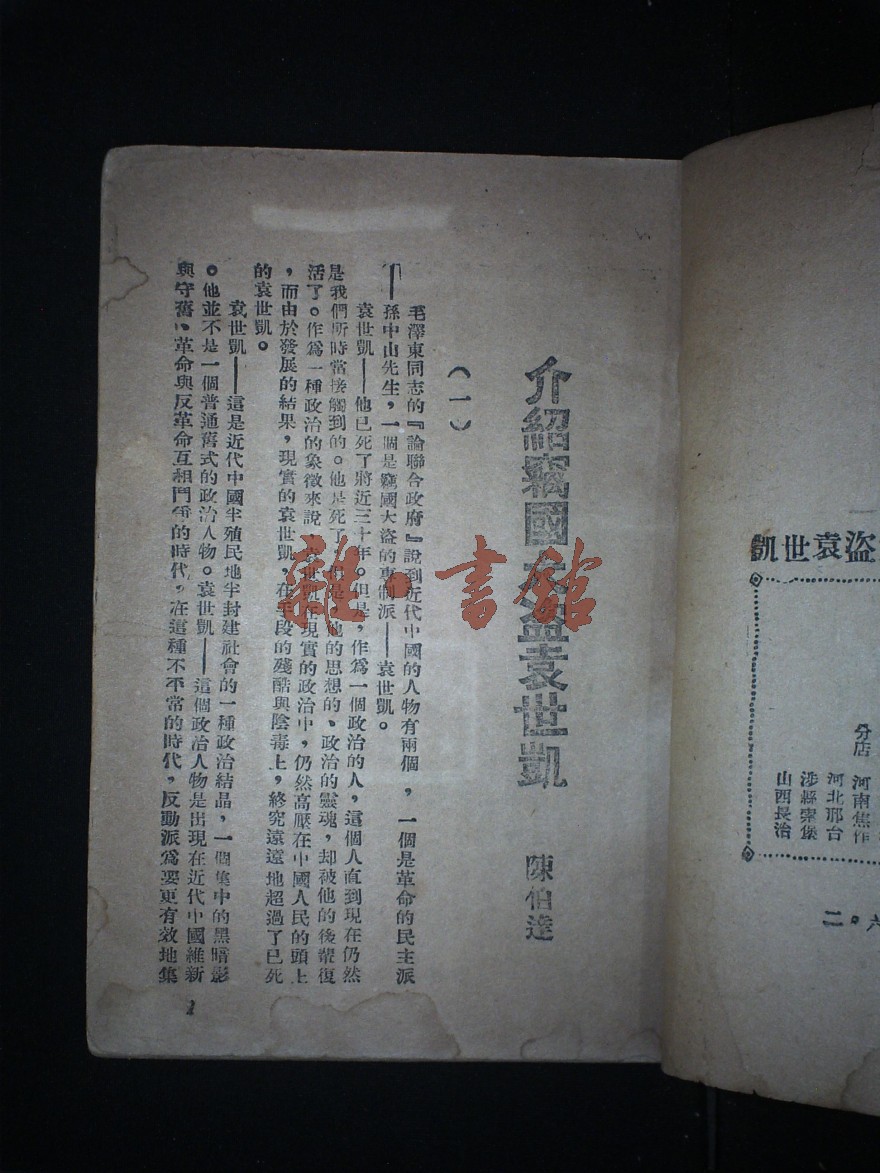 盜袁世凱
分店
河南焦作
河北邢台
涉縣索堡
山西長治
二。六
介紹竊國大盜袁世凱
陳伯達
（一）
毛澤東同志的『論聯合政府』說到近代中國的人物有兩個，一個是革命的民主派
——孫中山先生，一個是竊國大盜的專制派——袁世凱。
袁世凱——他已死了將近三十年。但是，作爲一個政治的人，這個人直到現在仍然
是我們所時常接觸到的。他是死了，但是，他的思想的、政治的靈魂，却被他的後輩復
活了。作爲一種政治的象徵來說，袁世凱在現實的政治中，仍然高壓在中國人民的頭上
，而由於發展的結果，現實的袁世凱，在手段的殘酷與陰毒上，終究遠遠地超過了已死
的袁世凱。
袁世凱——這是近代中國半殖民地半封建社會的一種政治結晶，一個集中的黑暗影
。他並不是一個普通舊式的政治人物。袁世凱——這個政治人物是出現在近代中國維新
與守舊、革命與反革命互相鬥爭的時代，在這種不平常的時代，反動派爲要更有效地集
1
雜·書館